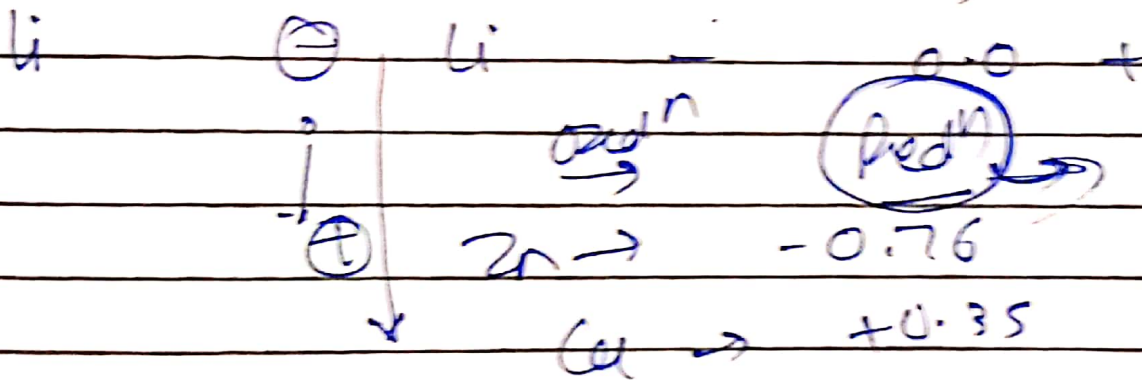 Li ⊖ Li - 0.0 +
oxdⁿ → Redⁿ →
⊕ Zn → -0.76
Cu → +0.35